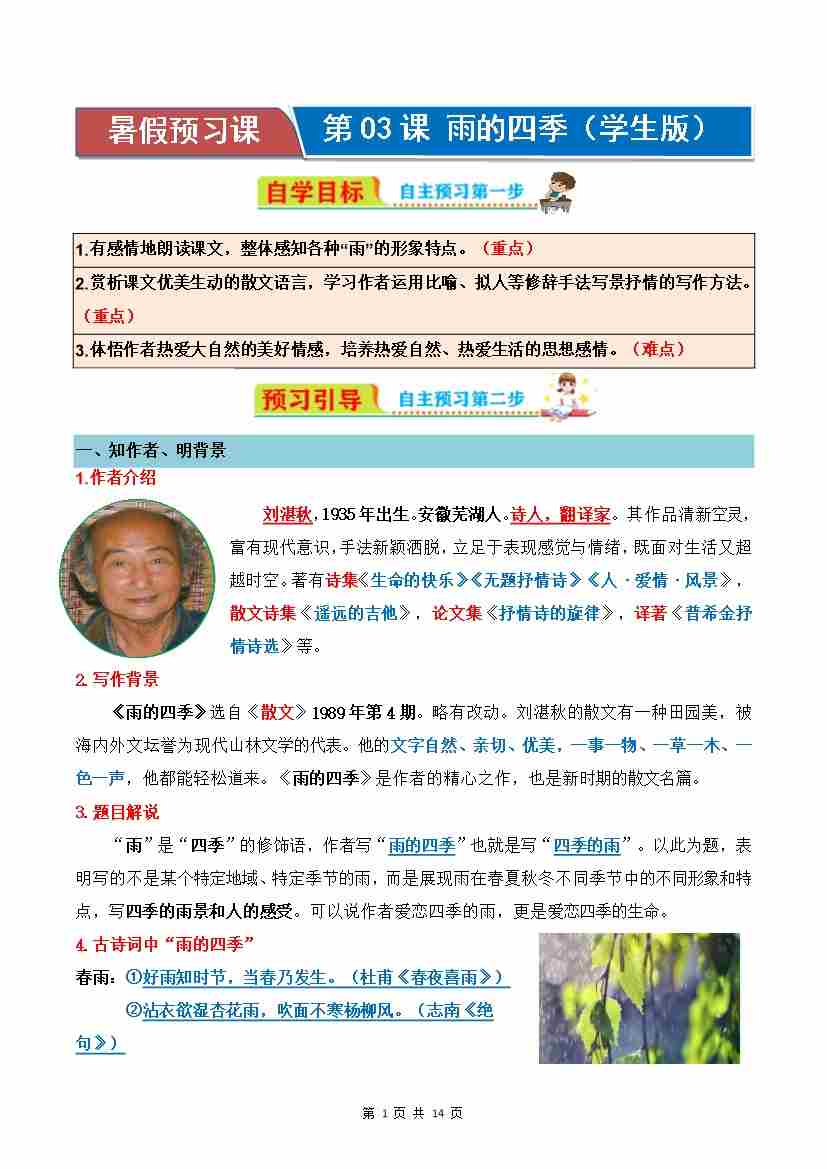 暑假预习课
第03课 雨的四季（学生版）
自学目标 自主预习第一步
1.有感情地朗读课文，整体感知各种“雨”的形象特点。（重点）
2.赏析课文优美生动的散文语言，学习作者运用比喻、拟人等修辞手法写景抒情的写作方法。
（重点）
3.体悟作者热爱大自然的美好情感，培养热爱自然、热爱生活的思想感情。（难点）
预习引导 自主预习第二步
一、知作者、明背景
1.作者介绍
刘湛秋，1935年出生。安徽芜湖人。诗人，翻译家。其作品清新空灵，
富有现代意识，手法新颖洒脱，立足于表现感觉与情绪，既面对生活又超
越时空。著有诗集《生命的快乐》《无题抒情诗》《人·爱情·风景》，
散文诗集《遥远的吉他》，论文集《抒情诗的旋律》，译著《普希金抒
情诗选》等。
2.写作背景
《雨的四季》选自《散文》1989年第4期。略有改动。刘湛秋的散文有一种田园美，被
海内外文坛誉为现代山林文学的代表。他的文字自然、亲切、优美，一事一物、一草一木、一
色一声，他都能轻松道来。《雨的四季》是作者的精心之作，也是新时期的散文名篇。
3.题目解说
“雨”是“四季”的修饰语，作者写“雨的四季”也就是写“四季的雨”。以此为题，表
明写的不是某个特定地域、特定季节的雨，而是展现雨在春夏秋冬不同季节中的不同形象和特
点，写四季的雨景和人的感受。可以说作者爱恋四季的雨，更是爱恋四季的生命。
4.古诗词中“雨的四季”
春雨：①好雨知时节，当春乃发生。（杜甫《春夜喜雨》）
②沾衣欲湿杏花雨，吹面不寒杨柳风。（志南《绝
句》）
第 1 页 共 14 页